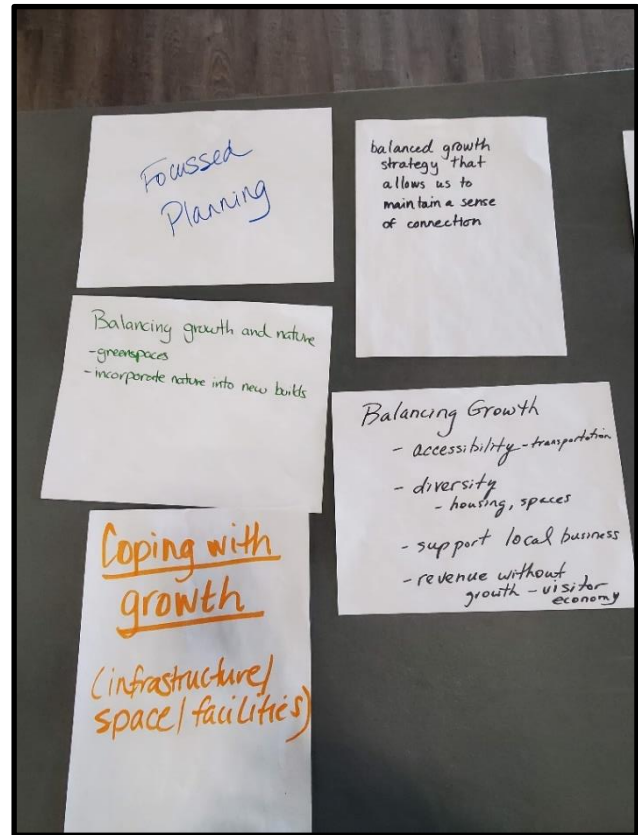 Focussed
Planning
balanced growth
strategy that
allows us to
maintain a sense
of connection
Balancing growth and nature
-greenspaces
-incorporate nature into new builds
Balancing Growth
- accessibility - transportation
- diversity
- housing, spaces
- support local business
- revenue without
growth - visitor
economy
Coping with
growth
(infrastructure/
space/facilities)